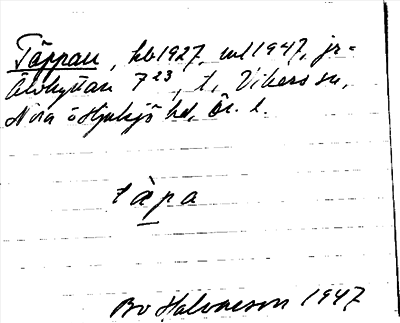 Täppan, hb 1927, ml 1947, jr =
Älvhyttan 7 23, t. Vikers sn,
Nora o Hjulsjö hd, Ör. l.
tàpa
Bo Halvarson 1947